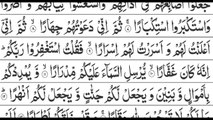 جَعَلُوْۤا اَصَابِعَهُمْ فِيْۤ اٰذَانِهِمْ وَاسْتَغْشَوْا ثِيَابَهُمْ وَ اَصَرُّوْا
وَاسْتَكْبَرُوا اسْتِكْبَارًا ۚ ثُمَّ اِنِّيْ دَعَوْتُهُمْ جِهَارًا ۙ ثُمَّ اِنِّيْۤ
اَعْلَنْتُ لَهُمْ وَ اَسْرَرْتُ لَهُمْ اِسْرَارًا ۙ فَقُلْتُ اسْتَغْفِرُوْا رَبَّكُمْ
اِنَّهٗ كَانَ غَفَّارًا ۙ يُّرْسِلِ السَّمَآءَ عَلَيْكُمْ مِّدْرَارًا ۙ وَّ يُمْدِدْكُمْ
بِاَمْوَالٍ وَّ بَنِيْنَ وَ يَجْعَلْ لَّكُمْ جَنّٰتٍ وَّ يَجْعَلْ لَّكُمْ اَنْهٰرًا